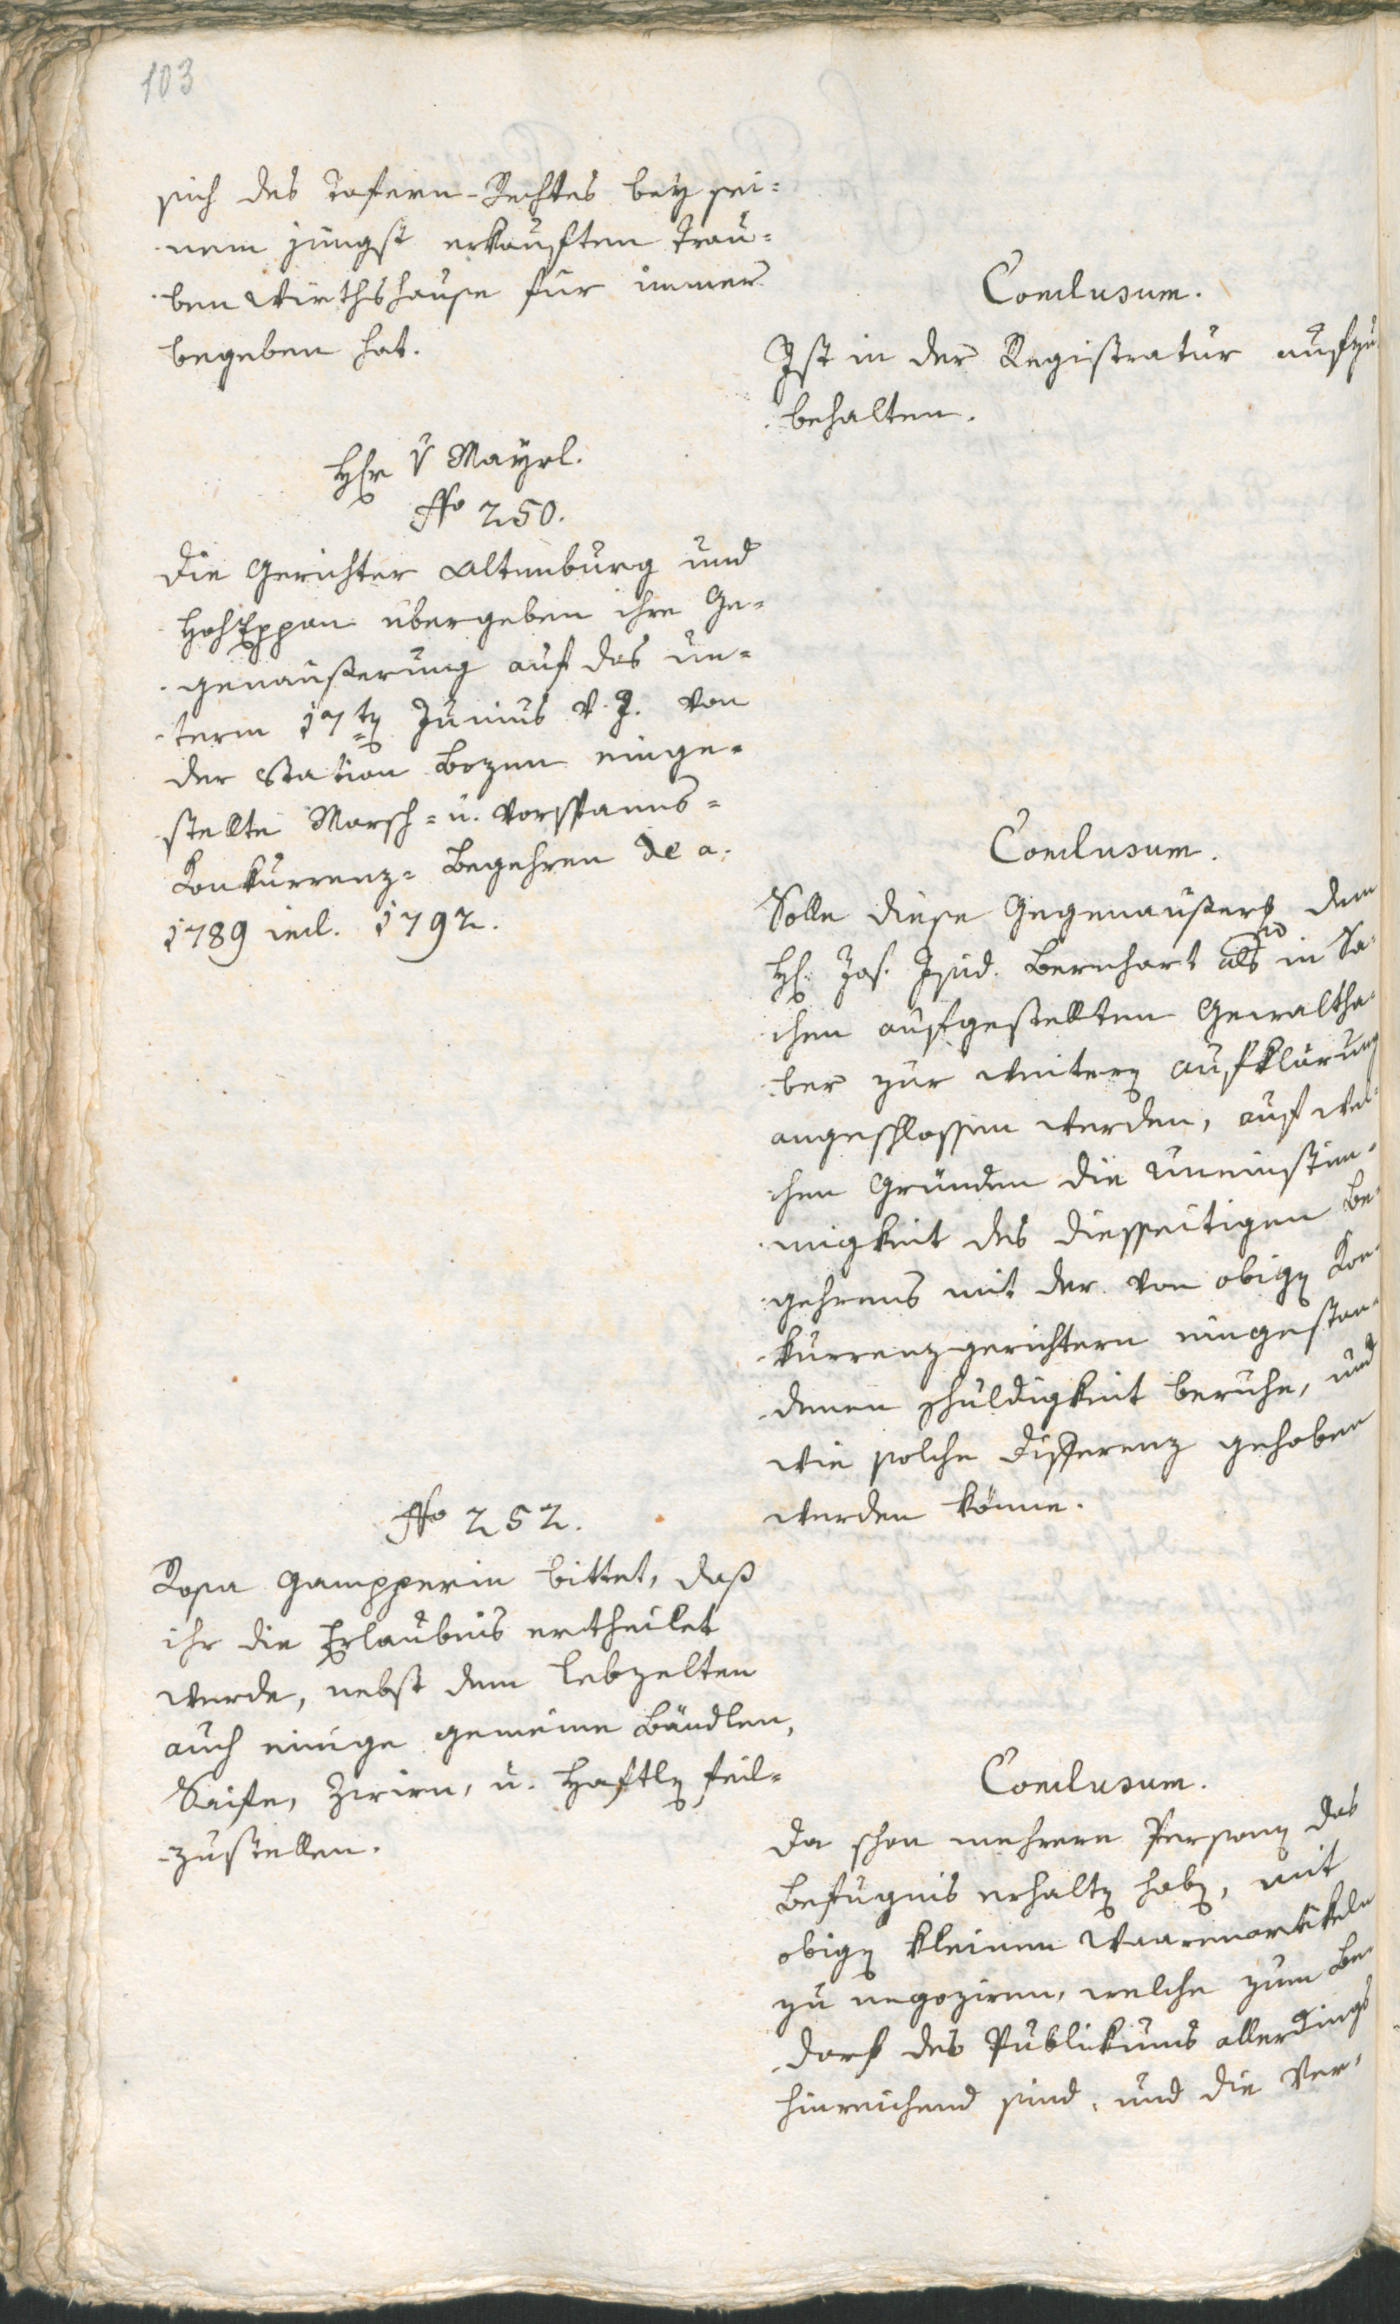 103
sich des Tafern-Rechtes bey sei=
nem jüngst erkauften Trau=
ben Wirthshause für immer
begeben hat.
Conclusum.
Ist in der Registratur aufzu
behalten.
H[er]r v Mayrl.
No 250.
Die Gerichter Altenburg und
HohEppan übergeben ihre Ge=
genäußerung auf das un=
term 17ten Junius v. J. von
der Station Bozen einge=
stellte Marsch= u. Vorspanns=
Konkurrenz= Begehren de a.
1789 incl. 1792.
Conclusum.
Solle diese Gegenäußerg dem
H. Jos. Isid. Bernhart als in Sa=
chen aufgestellten Gewaltha=
ber zur weitern Aufklärung
angeschlossen werden, auf wel=
chen Gründen die Uneinstim=
migkeit des diesseitigen Be=
gehrens mit der von obigen Kon=
kurrenzgerichtern eingestan=
denen Schuldigkeit beruhe, und
wie solche Differenz gehoben
werden könne.
No 252.
Rosa Gampperin bittet, daß
ihr die Erlaubnis ertheilet
werde, nebst dem Lebzelten
auch einige gemeine Bändlen,
Saife, Zwirn, u. Haftlen feil=
zustellen.
Conclusum.
Da schon mehrere Personen das
Befugnis erhalten haben, mit
obigen kleinen Waarenartikeln
zu negoziren, welche zum Be=
darf des Publikums allerdings
hinreichend sind, und die Ver=